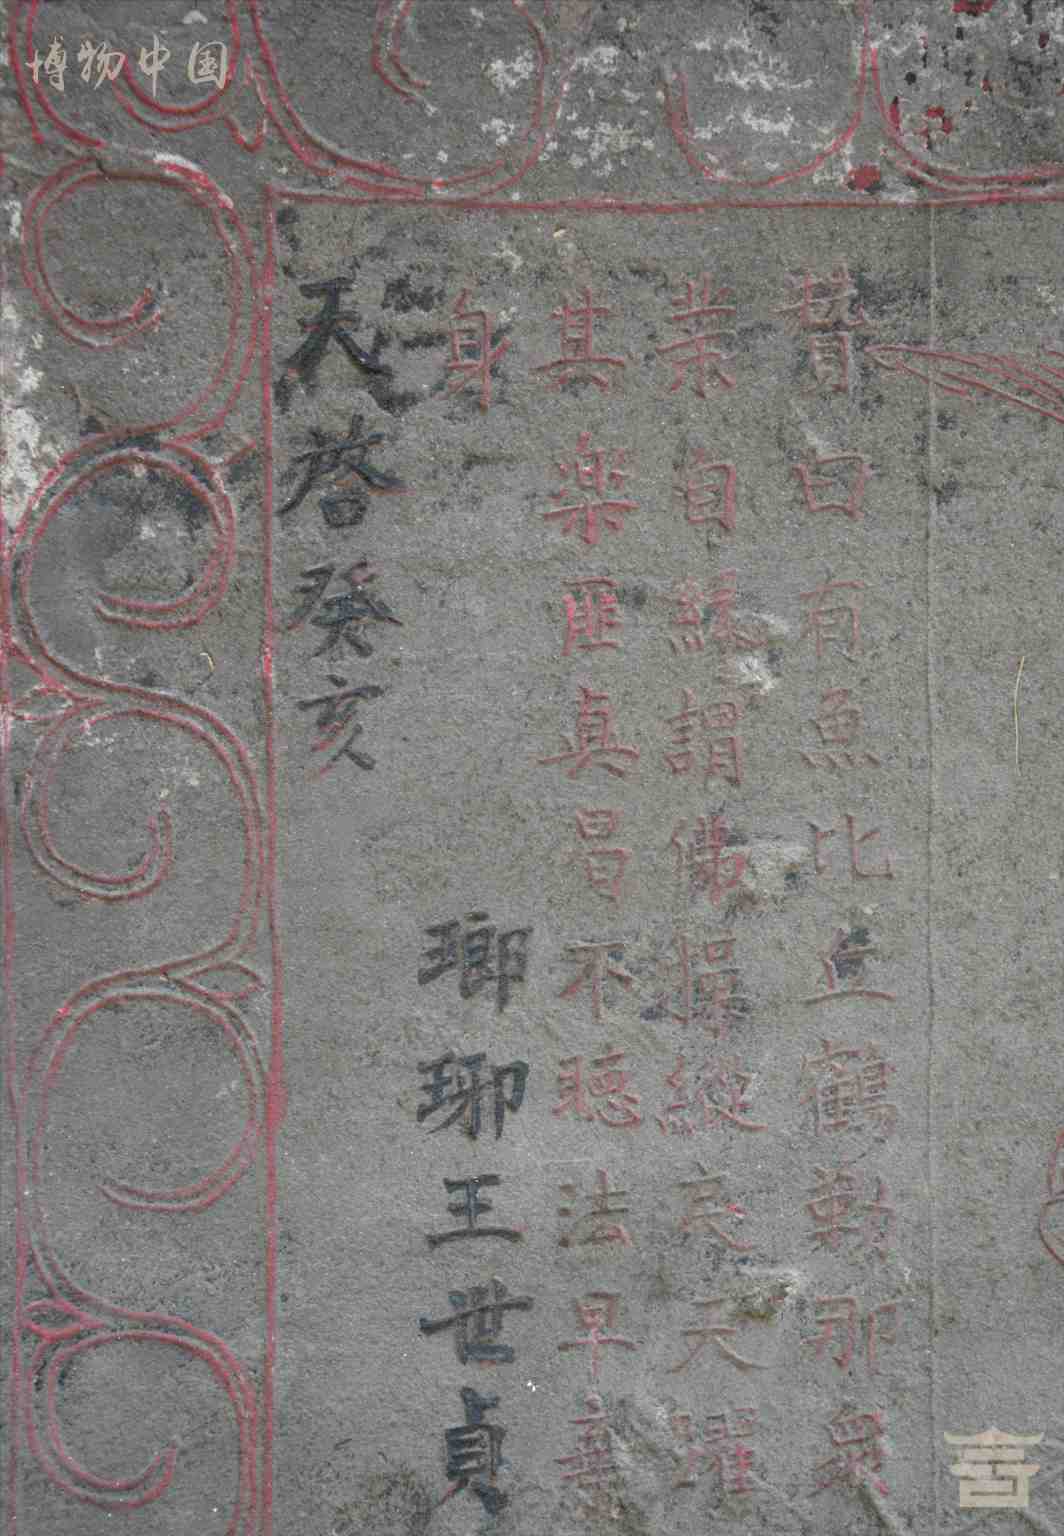 博物中国
贊曰有魚比丘鶴勒那眾
業自緣謂佛操縱哀天躍
其楽匪真曷不聴法早棄
身
瑯琊王世貞
天啓癸亥